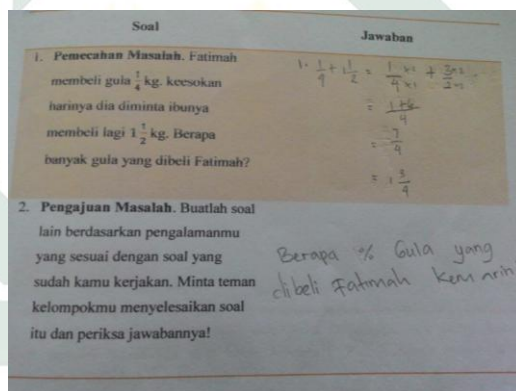 Soal
Jawaban
1. Pemecahan Masalah. Fatimah
membeli gula 1/4 kg. keesokan
harinya dia diminta ibunya
membeli lagi 1 1/2 kg. Berapa
banyak gula yang dibeli Fatimah?
1. 1/4 + 1 1/2 = 1×1/4×1 + 3×2/2×2 =
= 1+6/4
= 7/4
= 1 3/4
2. Pengajuan Masalah. Buatlah soal
lain berdasarkan pengalamanmu
yang sesuai dengan soal yang
sudah kamu kerjakan. Minta teman
kelompokmu menyelesaikan soal
itu dan periksa jawabannya!
Berapa % Gula yang
dibeli Fatimah kemarin